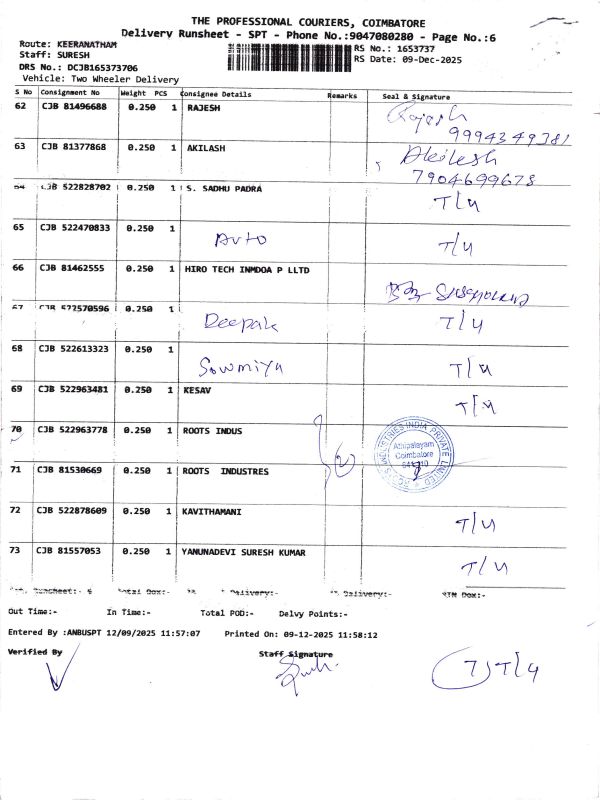 THE PROFESSIONAL COURIERS, COIMBATORE
Delivery Runsheet - SPT - Phone No.:9047080280 - Page No.:6
Route: KEERANATHAM
RS No.: 1653737
Staff: SURESH
RS Date: 09-Dec-2025
DRS No.: DCJB165373706
Vehicle: Two Wheeler Delivery
S No Consignment No Weight PCS Consignee Details Remarks Seal & Signature
62 CJB 81496688 0.250 1 RAJESH Rajesh
9994349381
63 CJB 81377868 0.250 1 AKILASH Akilesh
7904699678
64 CJB 522828702 0.250 1 S. SADHU PADRA T/4
65 CJB 522470833 0.250 1 Avto T/4
66 CJB 81462555 0.250 1 HIRO TECH INMDOA P LLTD
67 CJB 522570596 0.250 1 Deepak T/4
68 CJB 522613323 0.250 1 Sowmiya T/4
69 CJB 522963481 0.250 1 KESAV T/4
70 CJB 522963778 0.250 1 ROOTS INDUS
INDUSTRIES INDIA PRIVATE LIMITED
Athipalayam
Coimbatore
71 CJB 81530669 0.250 1 ROOTS INDUSTRES
72 CJB 522878609 0.250 1 KAVITHAMANI T/4
73 CJB 81557053 0.250 1 YANUNADEVI SURESH KUMAR T/4
Out Time:- In Time:- Total POD:- Delvy Points:-
Entered By :ANBUSPT 12/09/2025 11:57:07 Printed On: 09-12-2025 11:58:12
Verified By Staff Signature
7) T/4